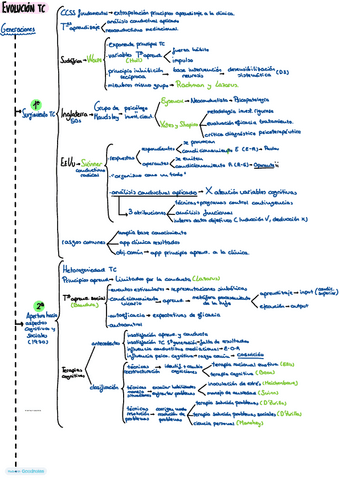 EVOLUCIÓN TC
Generaciones
CCSS fundamento → extrapolación principios aprendizaje a la clínica
Tª aprendizaje
análisis conductual aplicado
neoconductismo mediacional
1ª
Surgimiento TC
Sudáfrica → Wolpe
exponente principal TC
variables Tª aprend.
(Hull)
fuerza hábito
impulso
principio inhibición recíproca
base intervención neurosis
desensibilización sistemática (DS)
mismo grupo → Rachman y Lazarus
Inglaterra
50s
Grupo de psicólogos
Maudsley
Eysenck → Neoconductista → Psicopatología
Yates y Shapiro
metodología invest. rigurosa
evaluación eficacia tratamientos
crítica diagnóstico psicoterapéutico
EEUU → Skinner
conductismo radical
respuestas
respondientes
se provocan
condicionamiento E (E-R) → Pavlov
operantes
se emiten
condicionamiento R (R-E) → Operante
"organismo como un todo"
análisis conductual aplicado → X atención variables cognitivas
3 atribuciones
técnicas + programas control contingencias
análisis funcional
rasgos comunes
amplia base conocimiento
app clínica resultados
obj común → app principios aprend. a la clínica
2ª
Apertura hacia aspectos cognitivos y sociales
(1970)
Heterogeneidad TC
Principios aprend → Limitados por la conducta (Lazarus)
Tª aprend social
(Bandura)
eventos estimulares → representaciones simbólicas
condicionamiento vicario → aprend →
aprendizaje → input
ejecución → output
autoeficacia → expectativas de eficacia
autocontrol
Terapias cognitivas
antecedentes
investigación aprend y conducta
investigación TC 1ª generación → falta de resultados
influencia conductismo mediacional → E-O-R
influencia psico. cognitiva → rasgo común → COGNICIÓN
clasificación
técnicas reestructuración
identif + cambio cogniciones
terapia racional emotiva (Ellis)
terapia cognitiva (Beck)
técnicas manejo situaciones
enseñar habilidades afrontar problemas
inoculación de estrés (Meichenbaum)
manejo de ansiedad (Suinn)
técnicas resolución problemas
corregir modo abordar problemas
terapia solución problemas (D'Zurilla)
terapia solución problemas sociales (D'Zurilla)
ciencia personal (Mahoney)